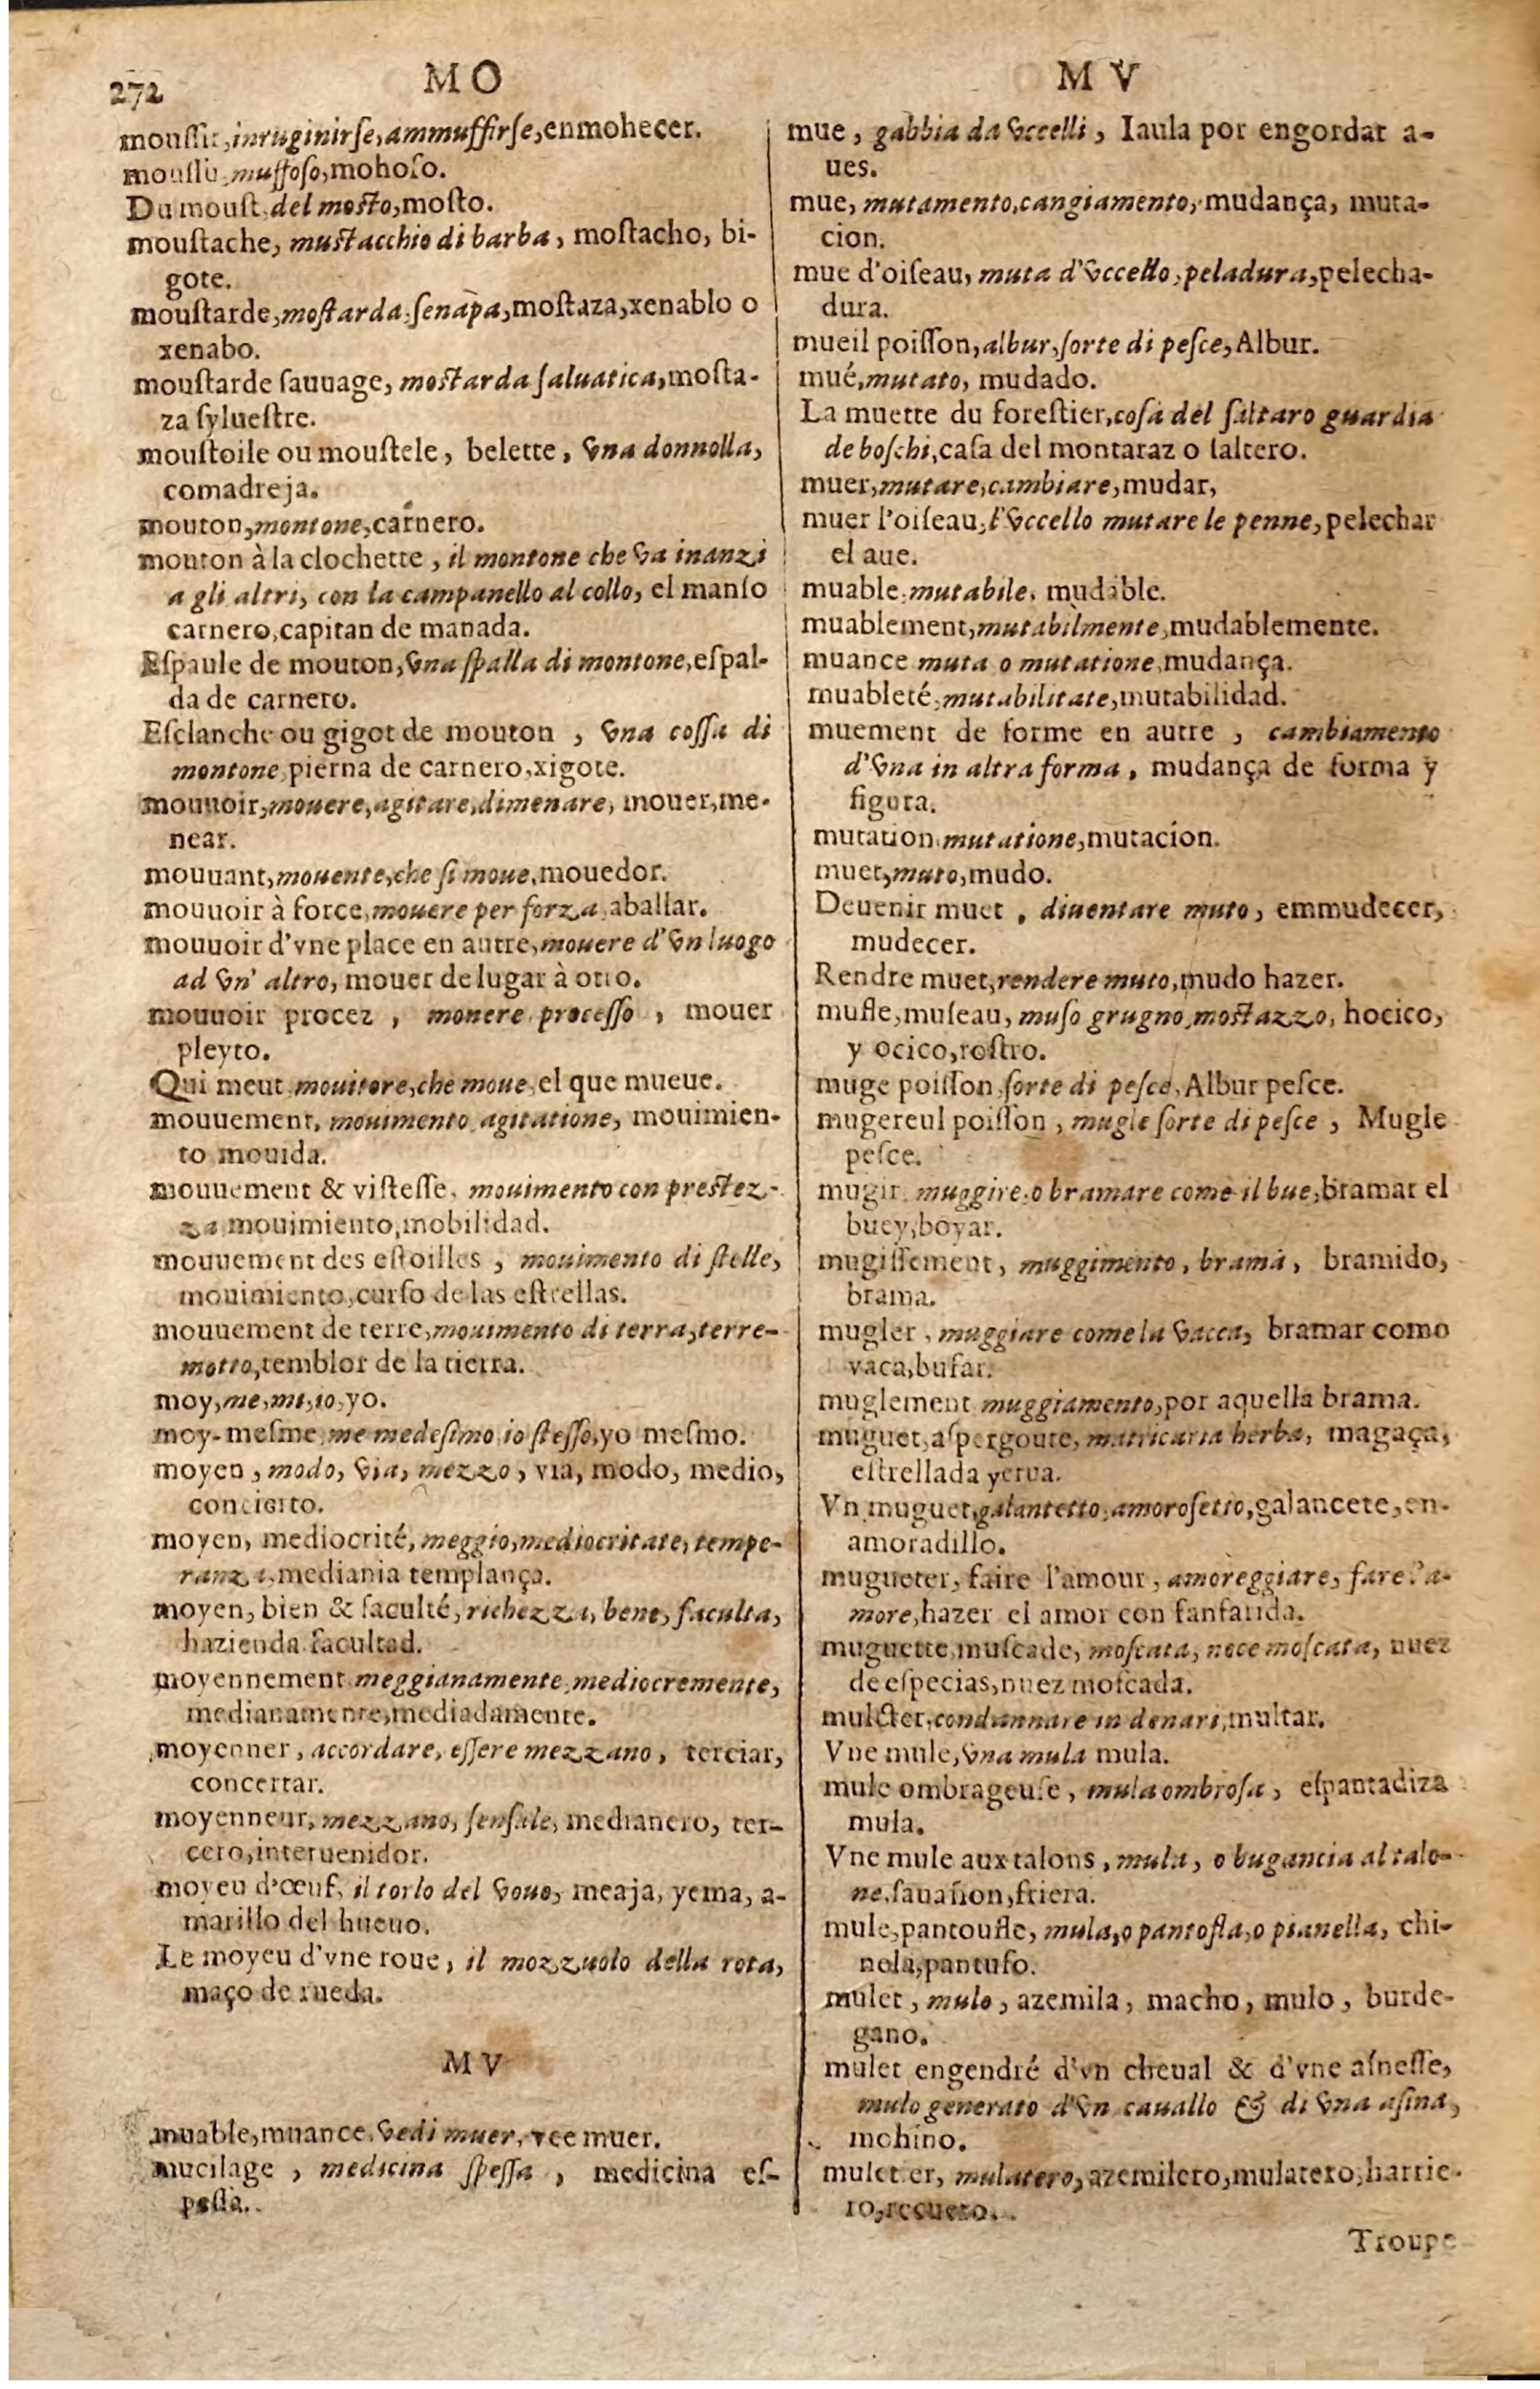 272
MO
mouſſir, inruginirſe, ammuffirſe, enmohecer.
mouſſu, muffoſo, mohoſo.
Du mouſt, del moſto, moſto.
mouſtache, muſtacchio di barba, moſtacho, bi-
gote.
mouſtarde, moſtarda, ſenapa, moſtaza, xenablo o
xenabo.
mouſtarde ſauuage, moſtarda ſaluatica, moſta-
za ſylueſtre.
mouſtoile ou mouſtele, belette, vna donnolla,
comadreja.
mouton, montone, carnero.
mouton à la clochette, il montone che va inanzi
a gli altri, con la campanello al collo, el manſo
carnero, capitan de manada.
Eſpaule de mouton, vna ſpalla di montone, eſpal-
da de carnero.
Eſclanche ou gigot de mouton, vna coſſa di
montone, pierna de carnero, xigote.
mouuoir, mouere, agitare, dimenare, mouer, me-
near.
mouuant, mouente, che ſi moue, mouedor.
mouuoir à force, mouere per forza, aballar.
mouuoir d'vne place en autre, mouere d'vn luogo
ad vn' altro, mouer de lugar à otro.
mouuoir procez, monere proceſſo, mouer
pleyto.
Qui meut, mouitore, che moue, el que mueue.
mouuement, mouimento, agitatione, mouimien-
to mouida.
mouuement & viſteſſe, mouimento con preſtez-
za, mouimiento, mobilidad.
mouuement des eſtoilles, mouimento di ſtelle,
mouimiento, curſo de las eſtrellas.
mouuement de terre, mouimento di terra, terre-
motto, temblor de la tierra.
moy, me, mi, io, yo.
moy-meſme, me medeſimo, io ſteſſo, yo meſmo.
moyen, modo, via, mezzo, via, modo, medio,
concierto.
moyen, mediocrité, meggio, mediocritate, tempe-
ranza, mediania templança.
moyen, bien & faculté, richezza, bene, faculta,
hazienda facultad.
moyennement, meggianamente, mediocremente,
medianamente, mediadamente.
moyenner, accordare, eſſere mezzano, terciar,
concertar.
moyenneur, mezzano, ſenſale, medianero, ter-
cero, interuenidor.
moyeu d'œuf, il torlo del vouo, meaja, yema, a-
marillo del hueuo.
Le moyeu d'vne roue, il mozzuolo della rota,
maço de rueda.
MV
muable, muance, vedi muer, vee muer.
mucilage, medicina ſpeſſa, medicina eſ-
peſſa.
MV
mue, gabbia da vccelli, Iaula por engordar a-
ues.
mue, mutamento, cangiamento, mudança, muta-
cion.
mue d'oiſeau, muta d'vccello, peladura, pelecha-
dura.
mueil poiſſon, albur, ſorte di peſce, Albur.
mué, mutato, mudado.
La muette du foreſtier, coſa del ſaltaro guardia
de boſchi, caſa del montaraz o ſaltero.
muer, mutare, cambiare, mudar,
muer l'oiſeau, l'vccello mutare le penne, pelechar
el aue.
muable, mutabile, mudable.
muablement, mutabilmente, mudablemente.
muance muta o mutatione, mudança.
muableté, mutabilitate, mutabilidad.
muement de forme en autre, cambiamento
d'vna in altra forma, mudança de forma y
figura.
mutation, mutatione, mutacion.
muet, muto, mudo.
Deuenir muet, diuentare muto, emmudecer,
mudecer.
Rendre muet, rendere muto, mudo hazer.
mufle, muſeau, muſo grugno, moſtazzo, hocico,
y ocico, roſtro.
muge poiſſon, ſorte di peſce, Albur peſce.
mugereul poiſſon, mugle ſorte di peſce, Mugle
peſce.
mugir, muggire, o bramare come il bue, bramar el
buey, boyar.
mugiſſement, muggimento, brama, bramido,
brama.
mugler, muggiare come la vacca, bramar como
vaca, bufar.
muglement, muggiamento, por aquella brama.
muguet, aſpergoute, matricaria herba, magaça,
eſtrellada yerua.
Vn muguet, galantetto, amoroſetto, galancete, en-
amoradillo.
mugueter, faire l'amour, amoreggiare, fare l'a-
more, hazer el amor con fanfarida.
muguette, muſcade, moſcata, noce moſcata, nuez
de eſpecias, nuez moſcada.
mulcter, condannare in denari, multar.
Vne mule, vna mula mula.
mule ombrageuſe, mula ombroſa, eſpantadiza
mula.
Vne mule aux talons, mula, o bugancia al talo-
ne, ſauañon, friera.
mule, pantoufle, mula, o pantofla, o pianella, chi-
nela, pantufo.
mulet, mulo, azemila, macho, mulo, burde-
gano.
mulet engendré d'vn cheual & d'vne aſneſſe,
mulo generato d'vn cauallo & di vna aſina,
mohino.
muletier, mulatero, azemilero, mulatero, harrie-
ro, recuero.
Troupe